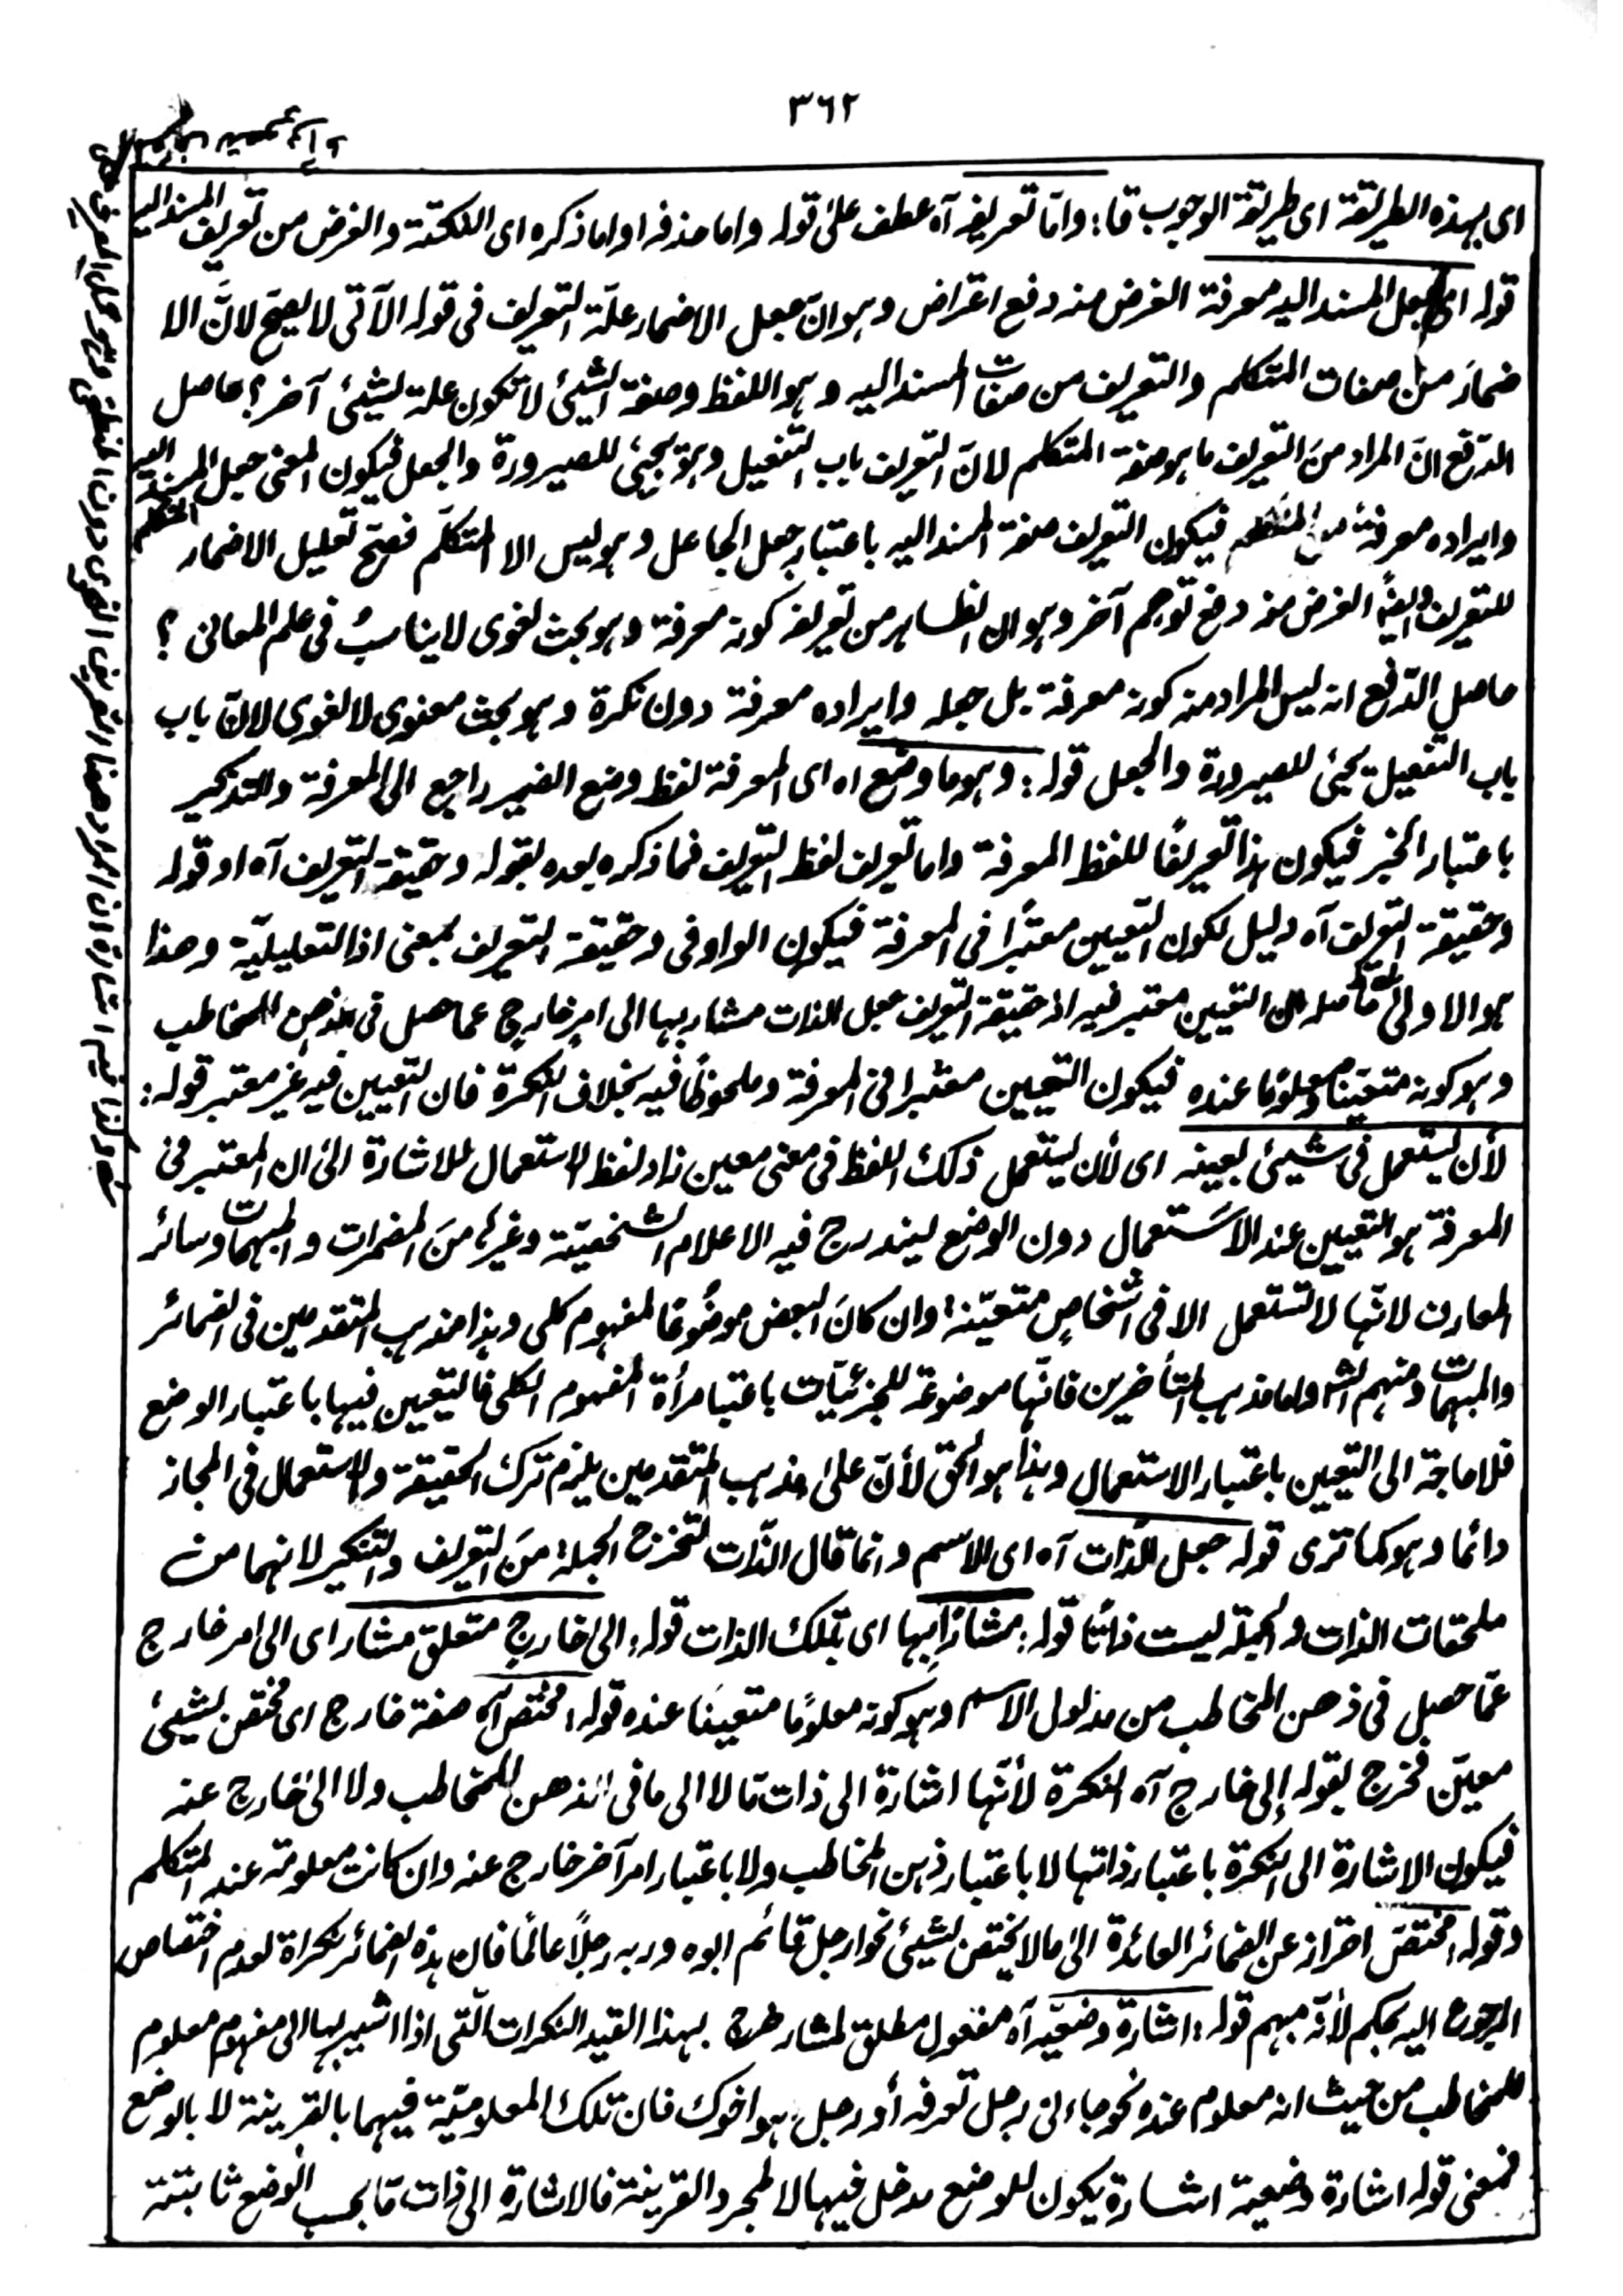 ٣٦٢
اى بهذه الطريقة اى طريقة الوجوب قا: وامّا تعريفه آه عطف علىٰ قوله واما حذفه او اما ذكره اى اللنكتة والغرض من تعريف المسند اليه
قوله اى جعل المسند اليه معرفة الغرض منه دفع اعتراض وهو انّ جعل الاضمار علّة التعريف فى قوله الآتى لا يصحّ لانّ الا
ضمارَ من صفات المتكلم والتعريف من صفات المسند اليه وهو اللفظ وصفة الشيئ لا تكون علة لشيئ آخر؟ حاصل
الدّفع انّ المراد منَ التعريف ما هو صفة المتكلم لانّ التعريف باب التفعيل وهو يجيئ للصيرورة والجعل فيكون المعنى جعل المسند اليه
وايراده معرفة من المتكلم فيكون التعريف صفة المسند اليه باعتبار جعل الجاعل وهو ليس الا المتكلّم فصحّ تعليل الاضمار
للتعريف وايضًا الغرض منه دفع توهم آخر وهو ان الظاهر من تعريفه كونه معرفة وهو بحث لغوى لا يناسبُ فى علم المعانى ؟
حاصل الدّفع انه ليس المراد منه كونه معرفة بل جعله وايراده معرفة دون نكرة وهو بحث معنوى لا لغوى لانّ باب
باب التفعيل يجيئ للصيرورة والجعل قوله: وهو ما وضع اه اى المعرفة لفظ وضع الضمير راجع الى المعرفة والتذكير
باعتبار الخبر فيكون هذا تعريفًا للفظ المعرفة واما تعريف لفظ التعريف فما ذكره بعده بقوله وحقيقة التعريف آه او قوله
وحقيقة التعريف آه دليل لكون التعيين معتبرًا فى المعرفة فيكون الواو فى وحقيقة التعريف بمعنى اذ التعليليّة وهذا
هو الاولىٰ حاصله ان التعيين معتبر فيه اذ حقيقة التعريف جعل الذات مشار بها الى امر خارج عما حصل فى ذهن المخاطب
وهو كونه متعيّنا ومعلومًا عنده فيكون التعيين معتبرا فى المعرفة وملحوظًا فيه بخلاف النكرة فان التعيين فيه غير معتبر قوله:
لأن يستعمل فى شيئ بعينه اى لأن يستعمل ذلك اللفظ فى معنى معين زاد لفظ الاستعمال للاشارة الىٰ ان المعتبر فى
المعرفة هو التعيين عند الاستعمال دون الوضع ليندرج فيه الاعلام الشخصيّة وغيرها منَ المضمرات والمبهمات وسائر
المعارف لانّها لا تستعمل الا فى اشخاصٍ متعيّنة وان كانَ البعض موضُوعًا لمفهوم كلى وهذا مذهب المتقدمين فى الضمائر
والمبهمات ومنهم الشر واما مذهب المتأخرين فانّها موضوعة للجزئيّات باعتبار مرأة المفهوم الكلى فالتعيين فيها باعتبار الوضع
فلا حاجة الى التعيين باعتبار الاستعمال وهذا هو الحق لأنّ علىٰ مذهب المتقدمين يلزم ترك الحقيقة والاستعمال فى المجاز
دائما وهو كما ترى قوله جعل الذات آه اى الاسم وانما قال الذّات لتخرج الجملة منَ التعريف والتنكير لانهما من
ملحقات الذات والجملة ليست ذاتا قوله: مشارًا بها اى بتلك الذات قوله: الى خارج متعلق مشار اى الى امر خارج
عمّا حصل فى ذهن المخاطب من مدلول الاسم وهو كونه معلومًا متعينًا عنده قوله: مختص اه صفة خارج اى مختص لشيئ
معيّن فخرج بقوله إلى خارج آه النكرة لأنّها اشارة الى ذات مّا لا الى ما فى الذهن للمخاطب ولا الىٰ خارج عنه
فيكون الاشارة الى النكرة باعتبار ذاتها لا باعتبار ذهن المخاطب ولا باعتبار امر آخر خارج عنه وان كانت معلومة عند المتكلم
وقوله مختصّ احتراز عن الضمائر العائدة الىٰ ما لا يختص لشيئ نحو ارجل قائم ابوه وربه رجلًا عالمًا فان هذه الضمائر نكراة لعدم اختصاص
المرجوع اليه بحكم لأنّه مبهم قوله: اشارة وضعيّه آه مفعول مطلق لمشار خرج بهذا القيد النكرات الّتى اذا اشير بها الى مفهوم معلوم
للمخاطب من حيث انه معلوم عنده نحو جاءنى رجل تعرفه أو رجل هو اخوك فان تلك المعلوميّة فيهما بالقرينة لا بالوضع
فمعنى قوله اشارة وضعية اشارة يكون للوضع مدخل فيها لا لمجرد القرينة فالاشارة الى ذات مّا بحسب الوضع ثابتة